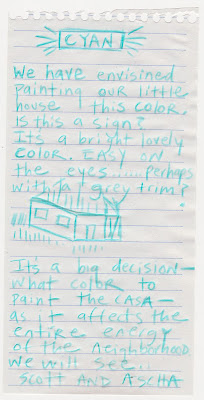 CYAN
We have envisined
painting our little
house this color.
Is this a sign?
It's a bright lovely
color. EASY on
the eyes......perhaps
with a grey trim?
It's a big decision—
what color to
paint the CASA—
as it affects the
entire energy
of the neighborhood.
We will see..
Scott AND ASCHA